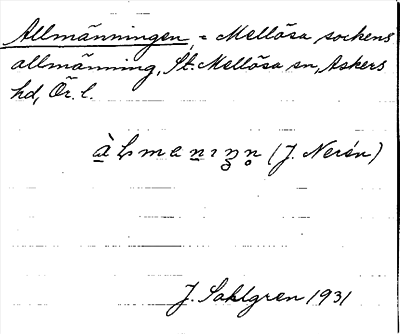 Allmänningen = Mellösa sockens
allmänning, St. Mellösa sn, Askers
hd, Ör. l.
(J. Nerén)
J. Sahlgren 1931